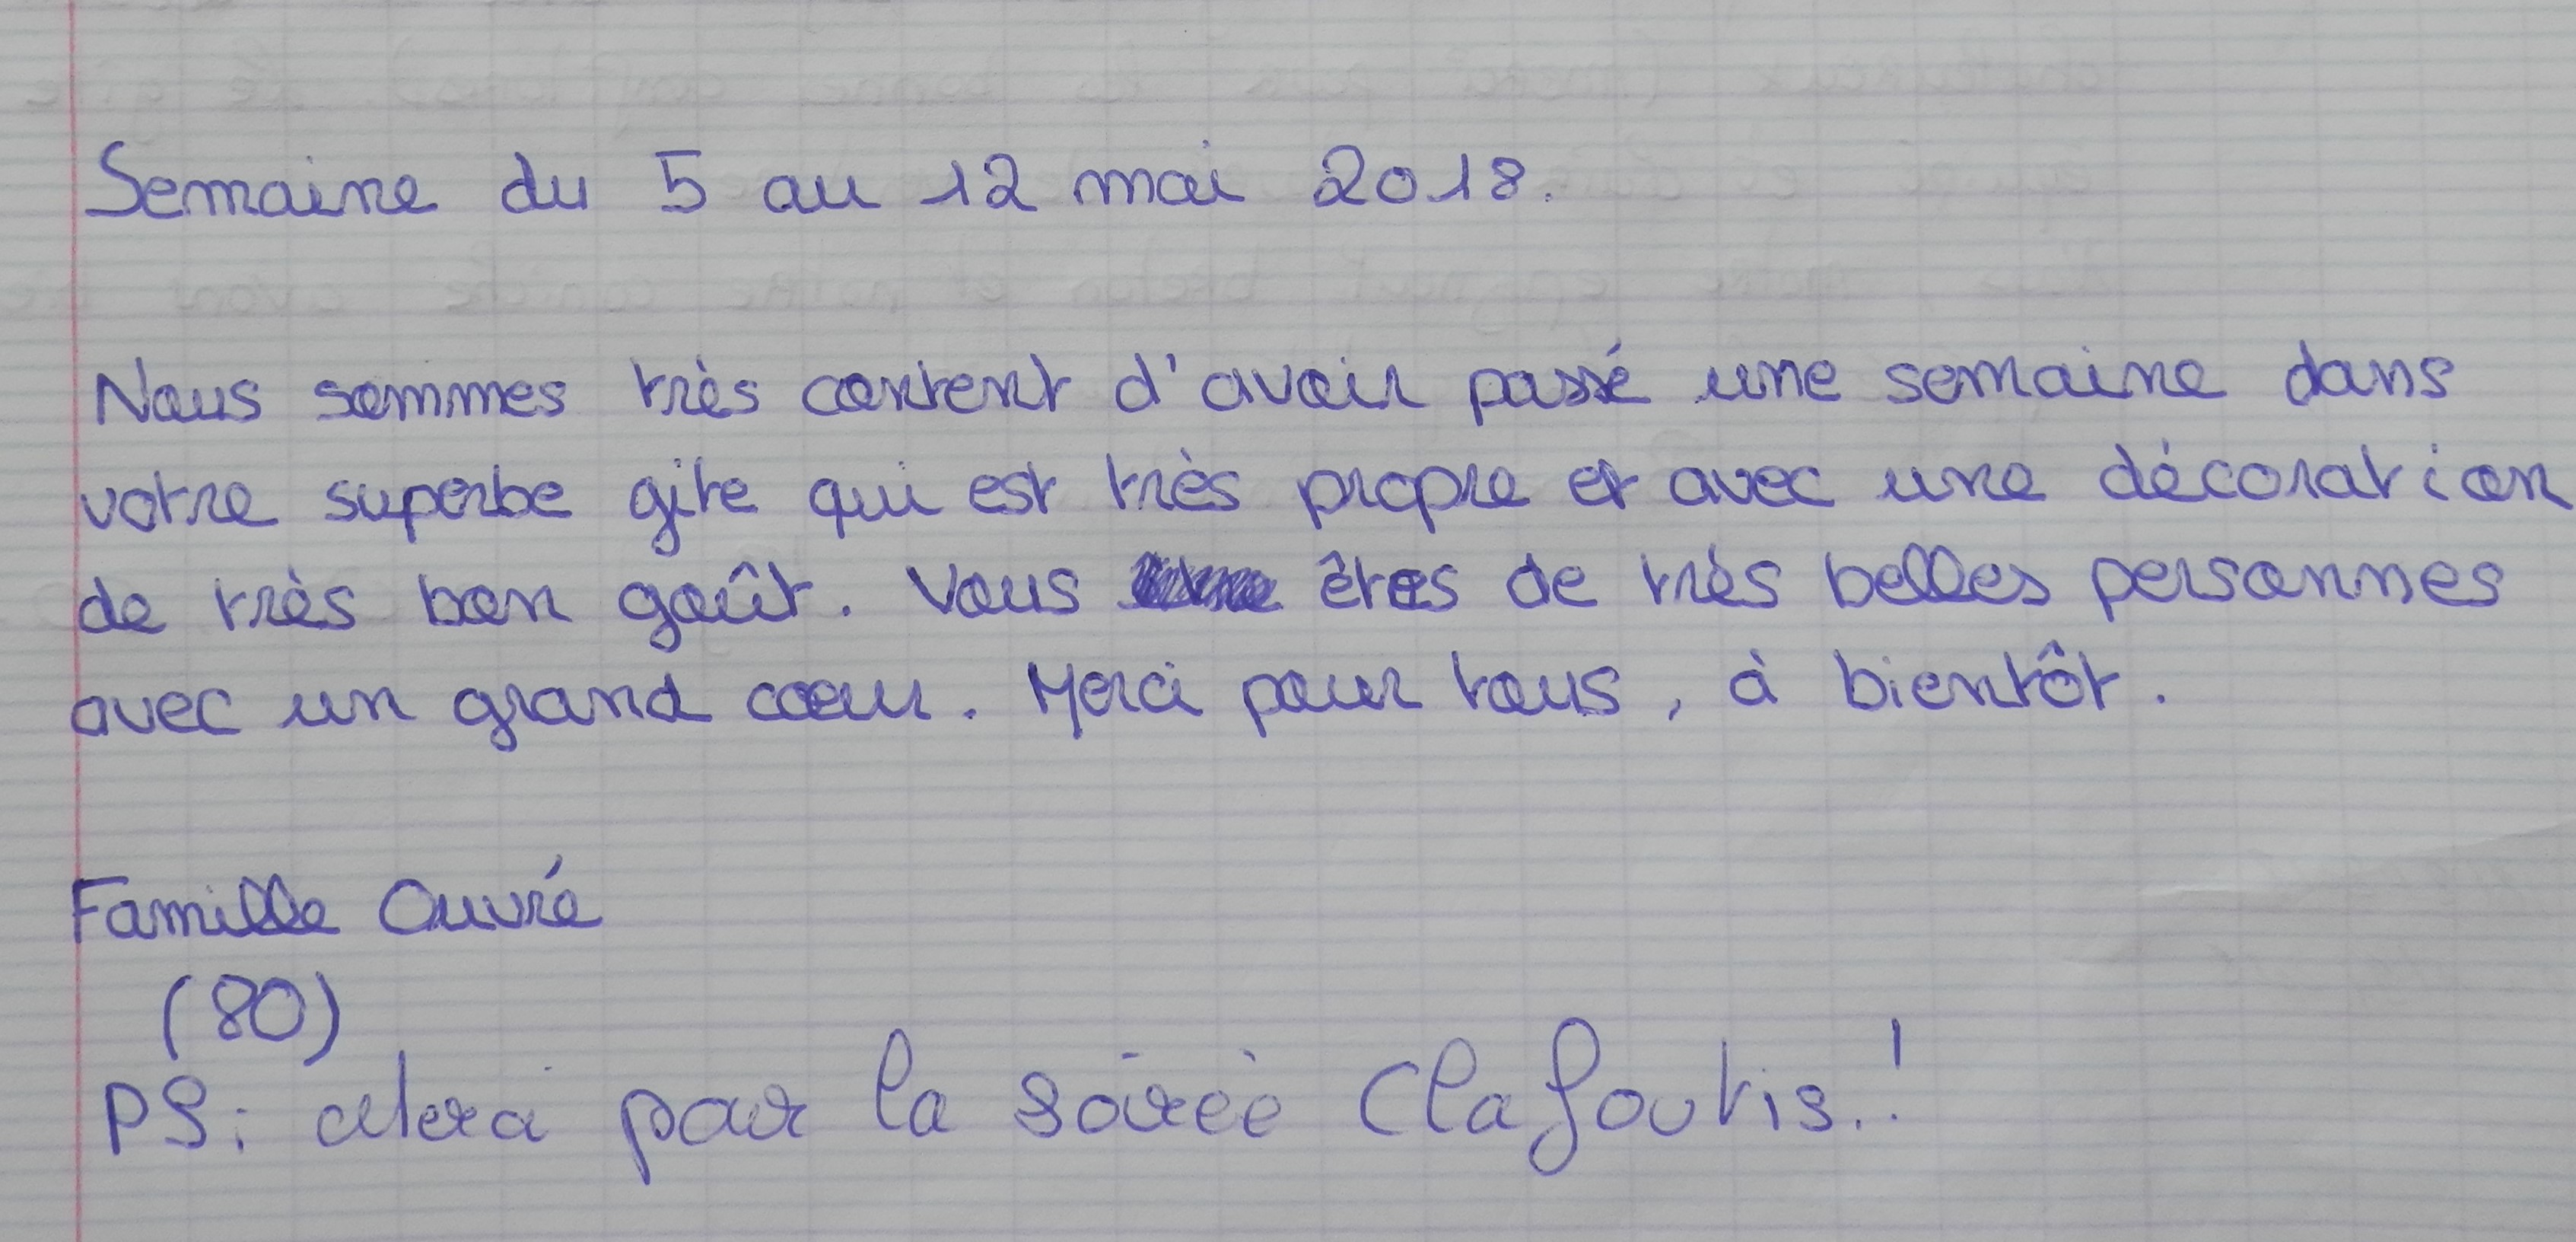 Semaine du 5 au 12 mai 2018.
Nous sommes très content d'avoir passé une semaine dans
votre superbe gite qui est très propre et avec une décoration
de très bon goût. Vous êtes de très belles personnes
avec un grand cœur. Merci pour tous, à bientôt.
Famille Ouvré
(80)
PS: par la soirée Clafoutis.!